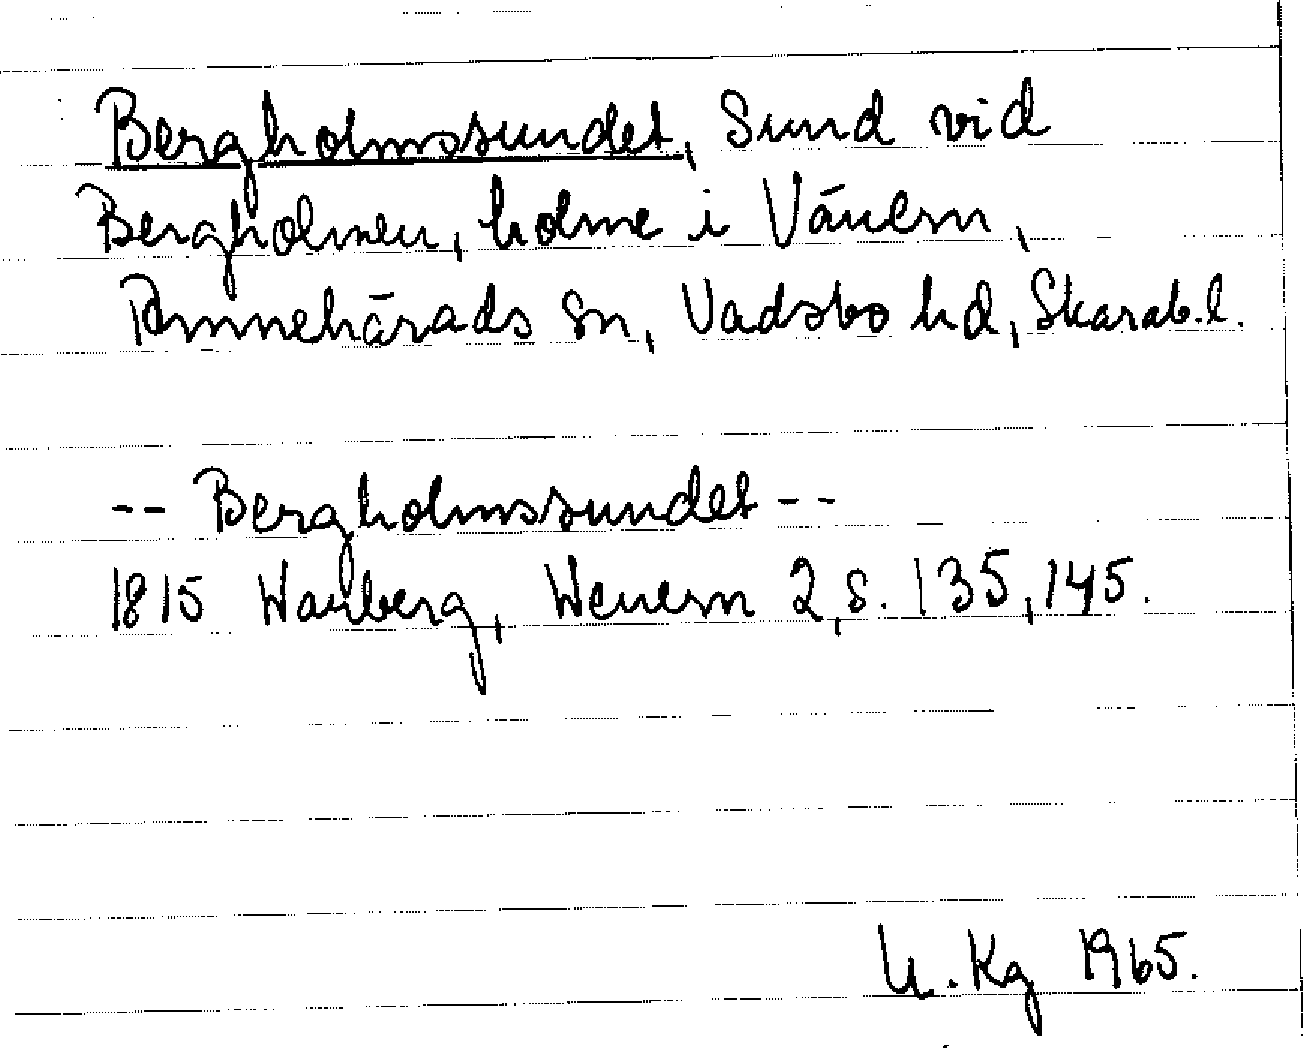 Bergholmssundet, Sund vid
Bergholmen, holme i Vänern,
Amnehärads sn, Vadsbo hd, Skarab.l.
-- Bergholmssundet --
1815 Warberg, Wenern 2, s. 135, 145.
U. Kg 1965.